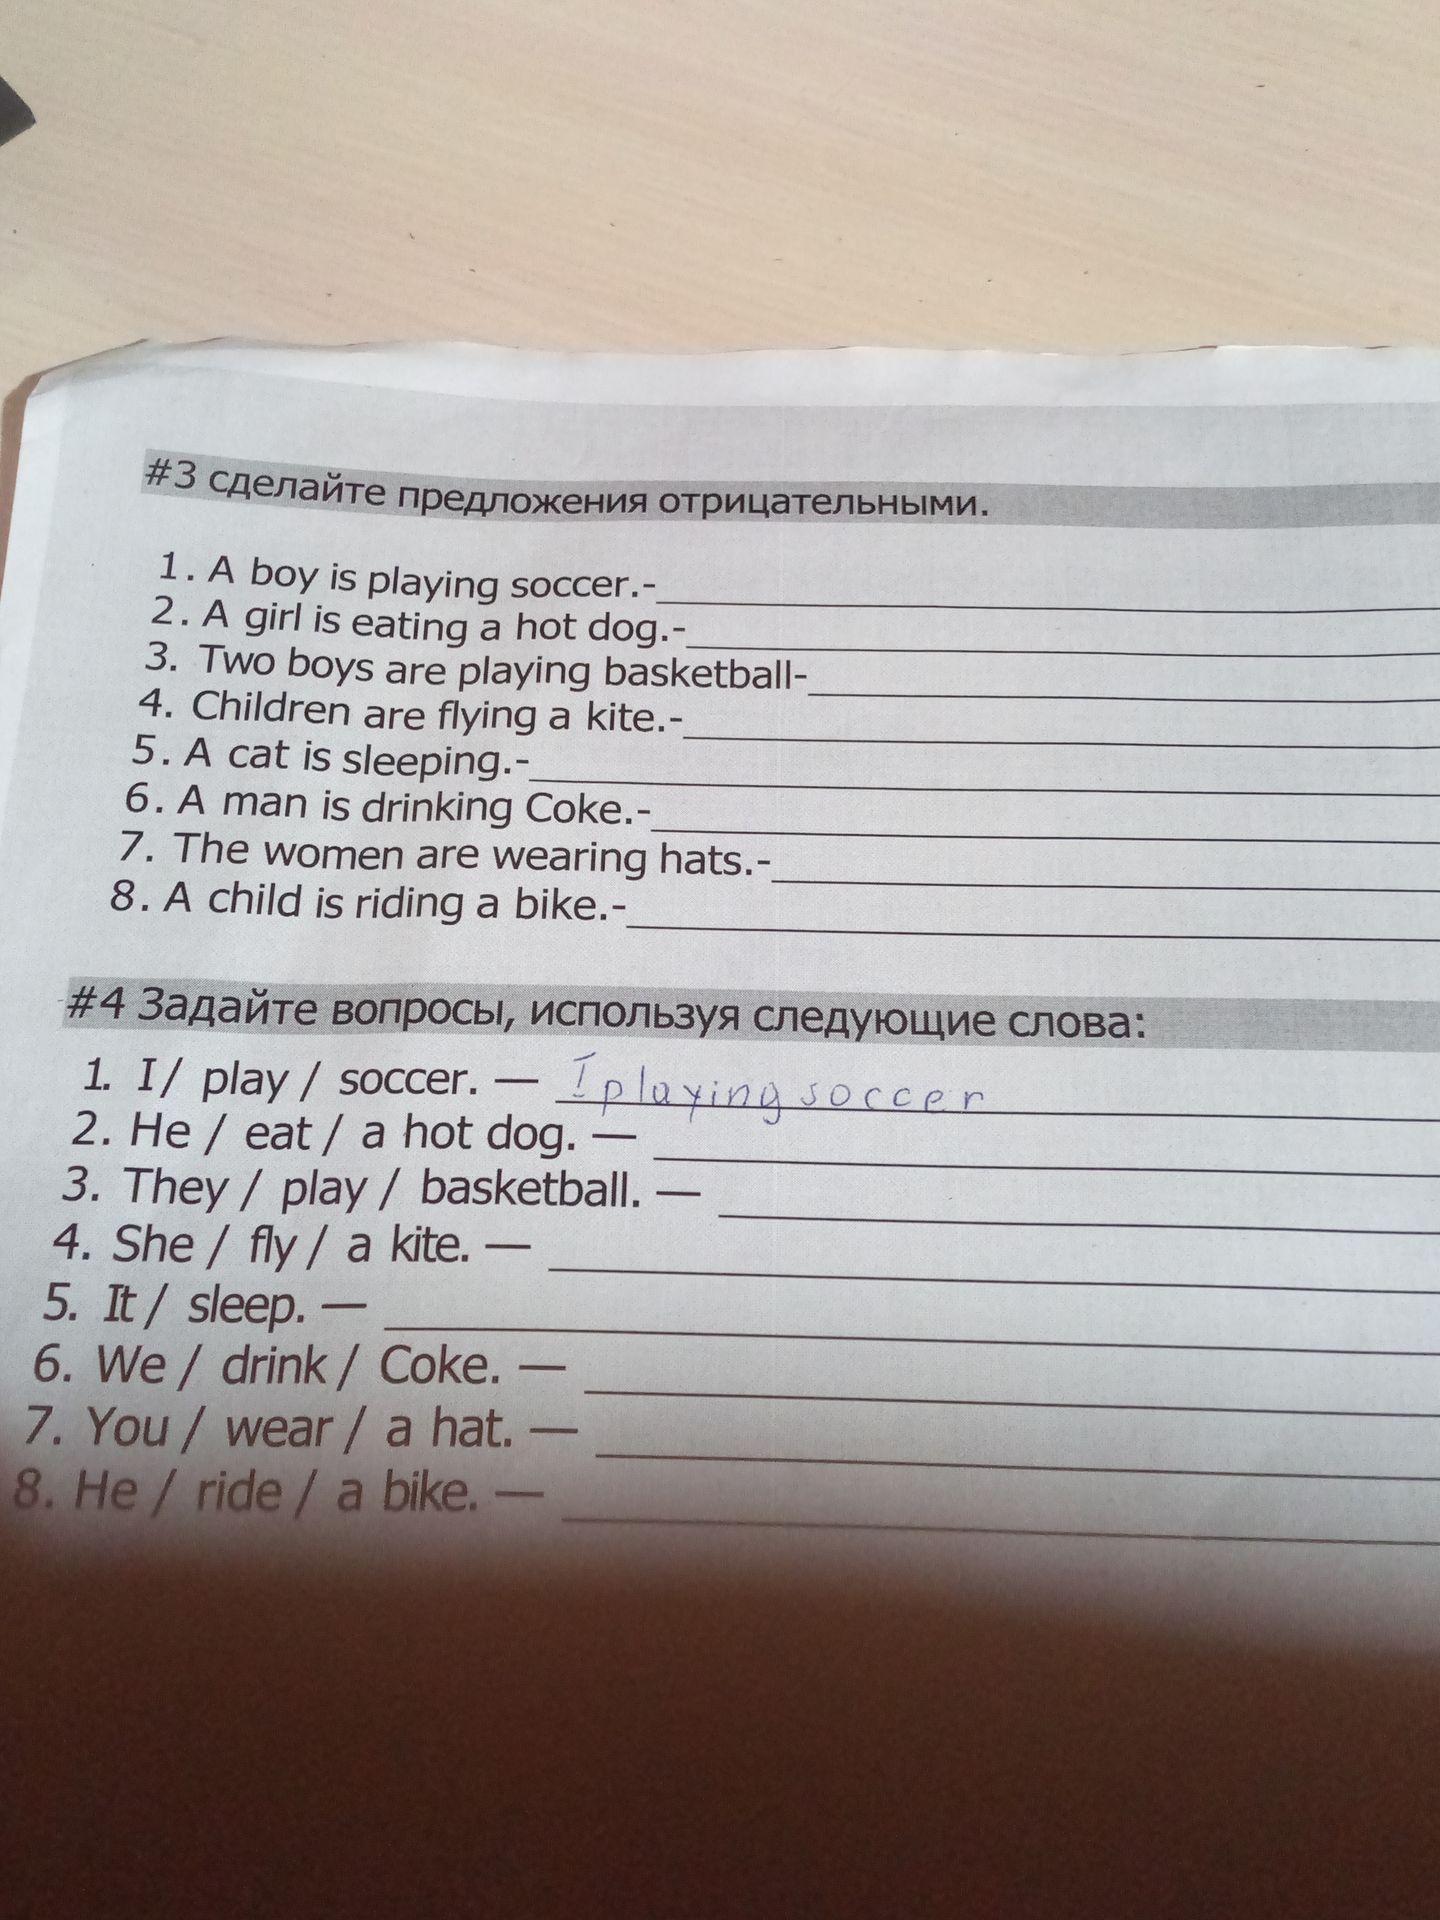 #3 сделайте предложения отрицательными.
1. A boy is playing soccer.-
2. A girl is eating a hot dog.-
3. Two boys are playing basketball-
4. Children are flying a kite.-
5. A cat is sleeping.-
6. A man is drinking Coke.-
7. The women are wearing hats.-
8. A child is riding a bike.-
#4 Задайте вопросы, используя следующие слова:
1. I / play / soccer. — I playing soccer
2. He / eat / a hot dog. —
3. They / play / basketball. —
4. She / fly / a kite. —
5. It / sleep. —
6. We / drink / Coke. —
7. You / wear / a hat. —
8. He / ride / a bike. —